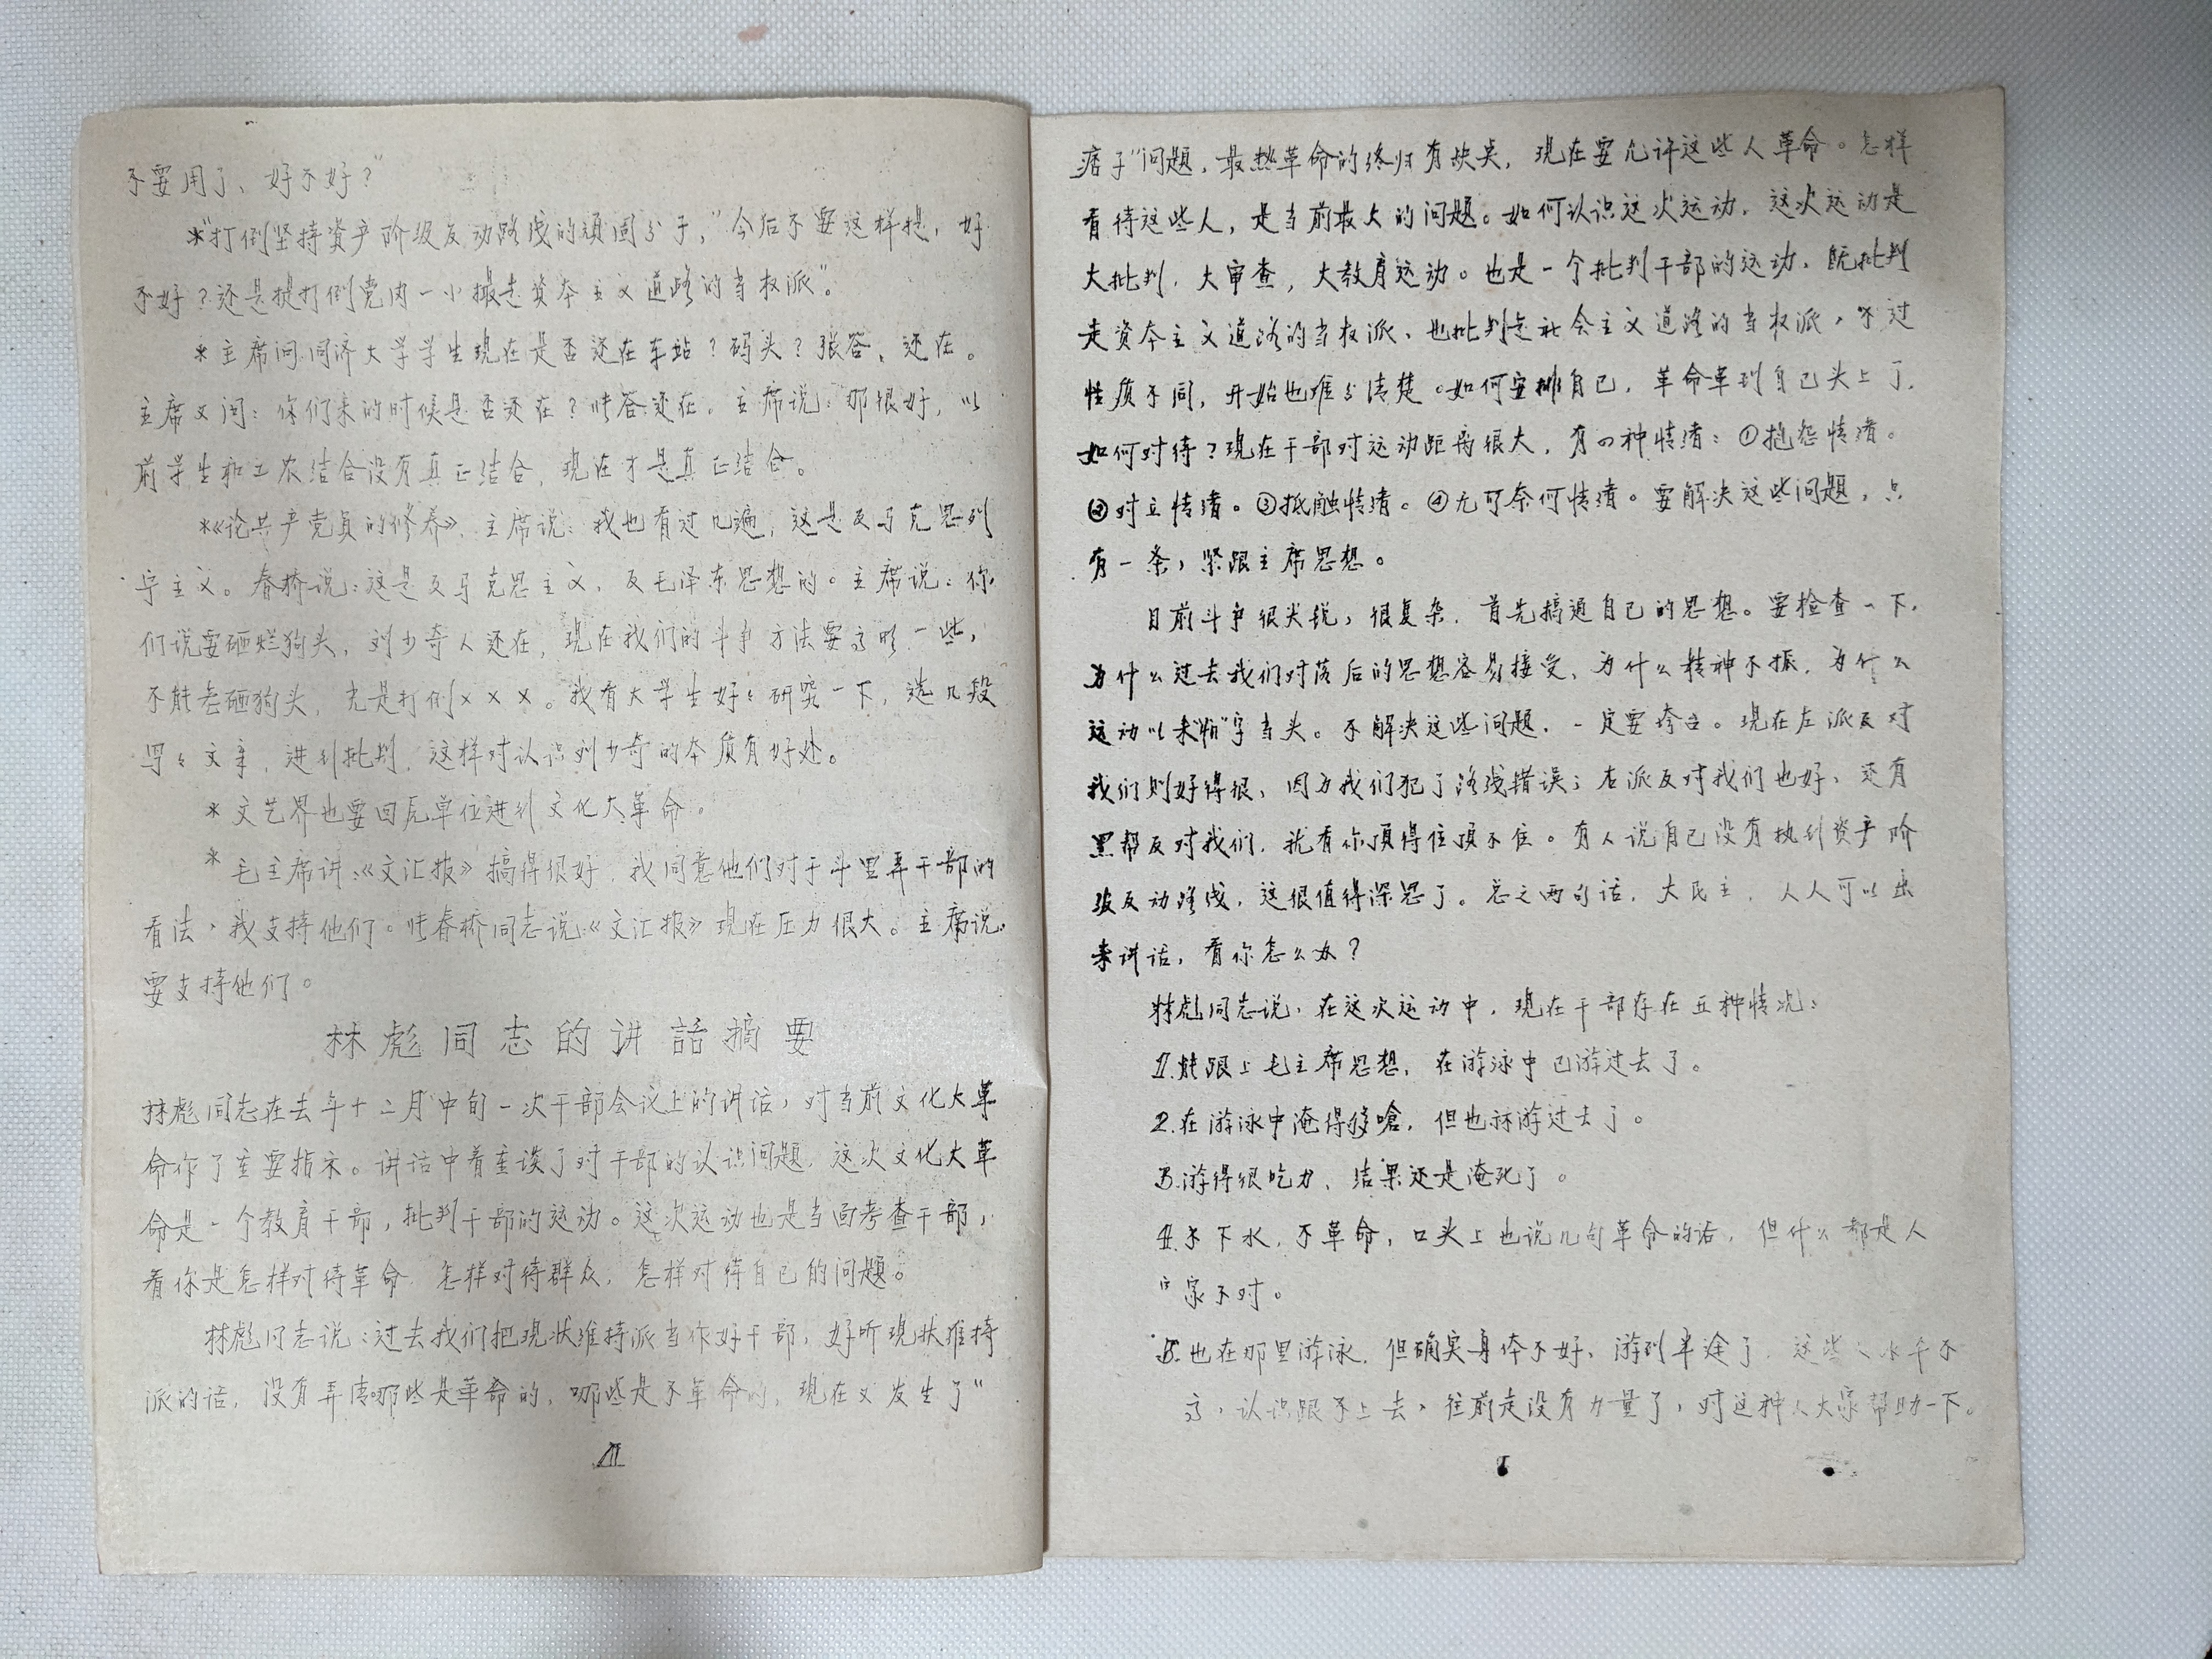 不要用了、好不好？”
*“打倒坚持资产阶级反动路线的顽固分子，”今后不要这样提，好
不好？还是提打倒党内一小撮走资本主义道路的当权派”。
*主席问同济大学学生现在是否还在车站？码头？张答、还在。
主席又问：你们来的时候是否还在？张答：还在。主席说：那很好，以
前学生和工农结合没有真正结合，现在才是真正结合。
*《论共产党员的修养》，主席说：我也看过几遍，这是反马克思列
宁主义。春桥说：这是反马克思主义，反毛泽东思想的。主席说：你
们说要砸烂狗头，刘少奇人还在，现在我们的斗争方法要高明一些，
不能老砸狗头，光是打倒×××。我看大学生好々研究一下，选几段
写々文章，进行批判，这样对认识刘少奇的本质有好处。
*文艺界也要回原单位进行文化大革命。
*毛主席讲：《文汇报》搞得很好，我同意他们对于斗里弄干部的
看法，我支持他们。张春桥同志说：《文汇报》现在压力很大。主席说：
要支持他们。
林彪同志的讲話摘要
林彪同志在去年十二月中旬一次干部会议上的讲话，对当前文化大革
命作了重要指示。讲话中着重谈了对干部的认识问题，这次文化大革
命是一个教育干部，批判干部的运动。这次运动也是当面考查干部，
看你是怎样对待革命，怎样对待群众，怎样对待自己的问题。
林彪同志说：过去我们把现状维持派当作好干部，好听现状维持
派的话，没有弄清哪些是革命的，哪些是不革命的，现在又发生了“
痞子”问题，最热革命的终归有缺点，现在要允许这些人革命。怎样
看待这些人，是当前最大的问题。如何认识这次运动，这次运动是
大批判，大审查，大教育运动。也是一个批判干部的运动，既批判
走资本主义道路的当权派、也批判走社会主义道路的当权派，不过
性质不同，开始也难分清楚。如何安排自己，革命革到自己头上了，
如何对待？现在干部对运动距离很大，有四种情绪：①抱怨情绪。
②对立情绪。③抵触情绪。④无可奈何情绪。要解决这些问题，只
有一条，紧跟主席思想。
目前斗争很尖锐，很复杂，首先搞通自己的思想。要检查一下，
为什么过去我们对落后的思想容易接受，为什么精神不振，为什么
运动以来“怕”字当头。不解决这些问题，一定要垮台。现在左派反对
我们则好得很，因为我们犯了路线错误；右派反对我们也好，还有
黑帮反对我们，就看你顶得住顶不住。有人说自己没有执行资产阶
级反动路线，这很值得深思了。总之两句话，大民主，人人可以出
来讲话，看你怎么办？
林彪同志说，在这次运动中，现在干部存在五种情况：
1.能跟上毛主席思想，在游泳中已游过去了。
2.在游泳中淹得够嗆，但也算游过去了。
3.游得很吃力、结果还是淹死了。
4.不下水，不革命，口头上也说几句革命的话，但什么都是人
家不对。
5.也在那里游泳，但确实身体不好，游到半途了，这些人水平不
高，认识跟不上去，往前走没有力量了，对这种人大家帮助一下。